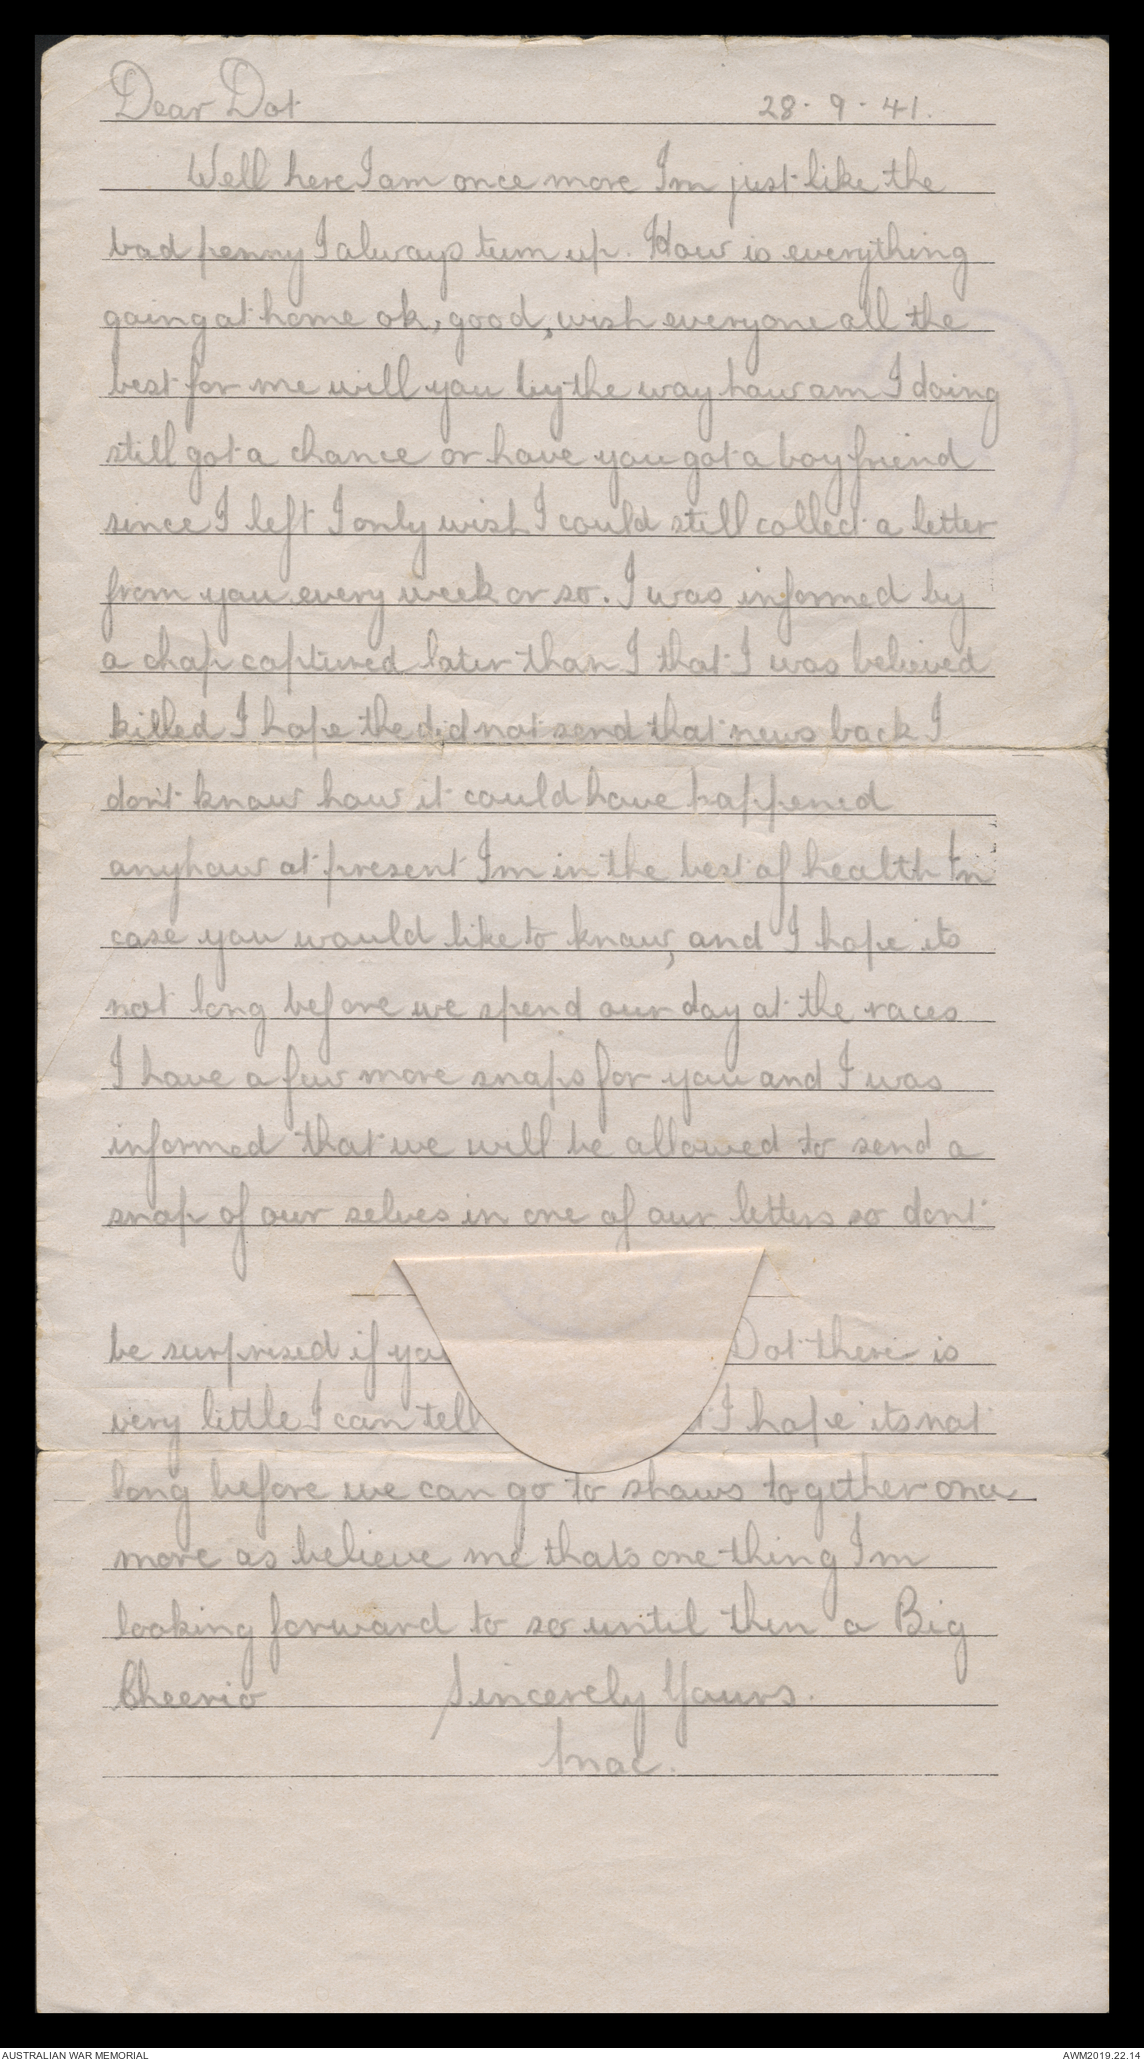 Dear Dot 28. 9. 41.
Well here I am once more Im just like the
bad penny I always turn up. How is everything
going at home ok, good, wish everyone all the
best for me will you by the way how am I doing
still got a chance or have you got a boy friend
since I left I only wish I could still collect a letter
from you every week or so. I was informed by
a chap captured later than I that I was believed
killed I hope the did not send that news back I
don't know how it could have happened
anyhow at present Im in the best of health In
case you would like to know, and I hope its
not long before we spend our day at the races
I have a few more snaps for you and I was
informed that we will be allowed to send a
snap of our selves in one of our letters so dont
be surprised if you Dot there is
very little I can tell I hope its not
long before we can go to shows together once
more as believe me that's one thing Im
looking forward to so until then a Big
Cheerio Sincerely Yours.
Mac.
AUSTRALIAN WAR MEMORIAL AWM2019.22.14